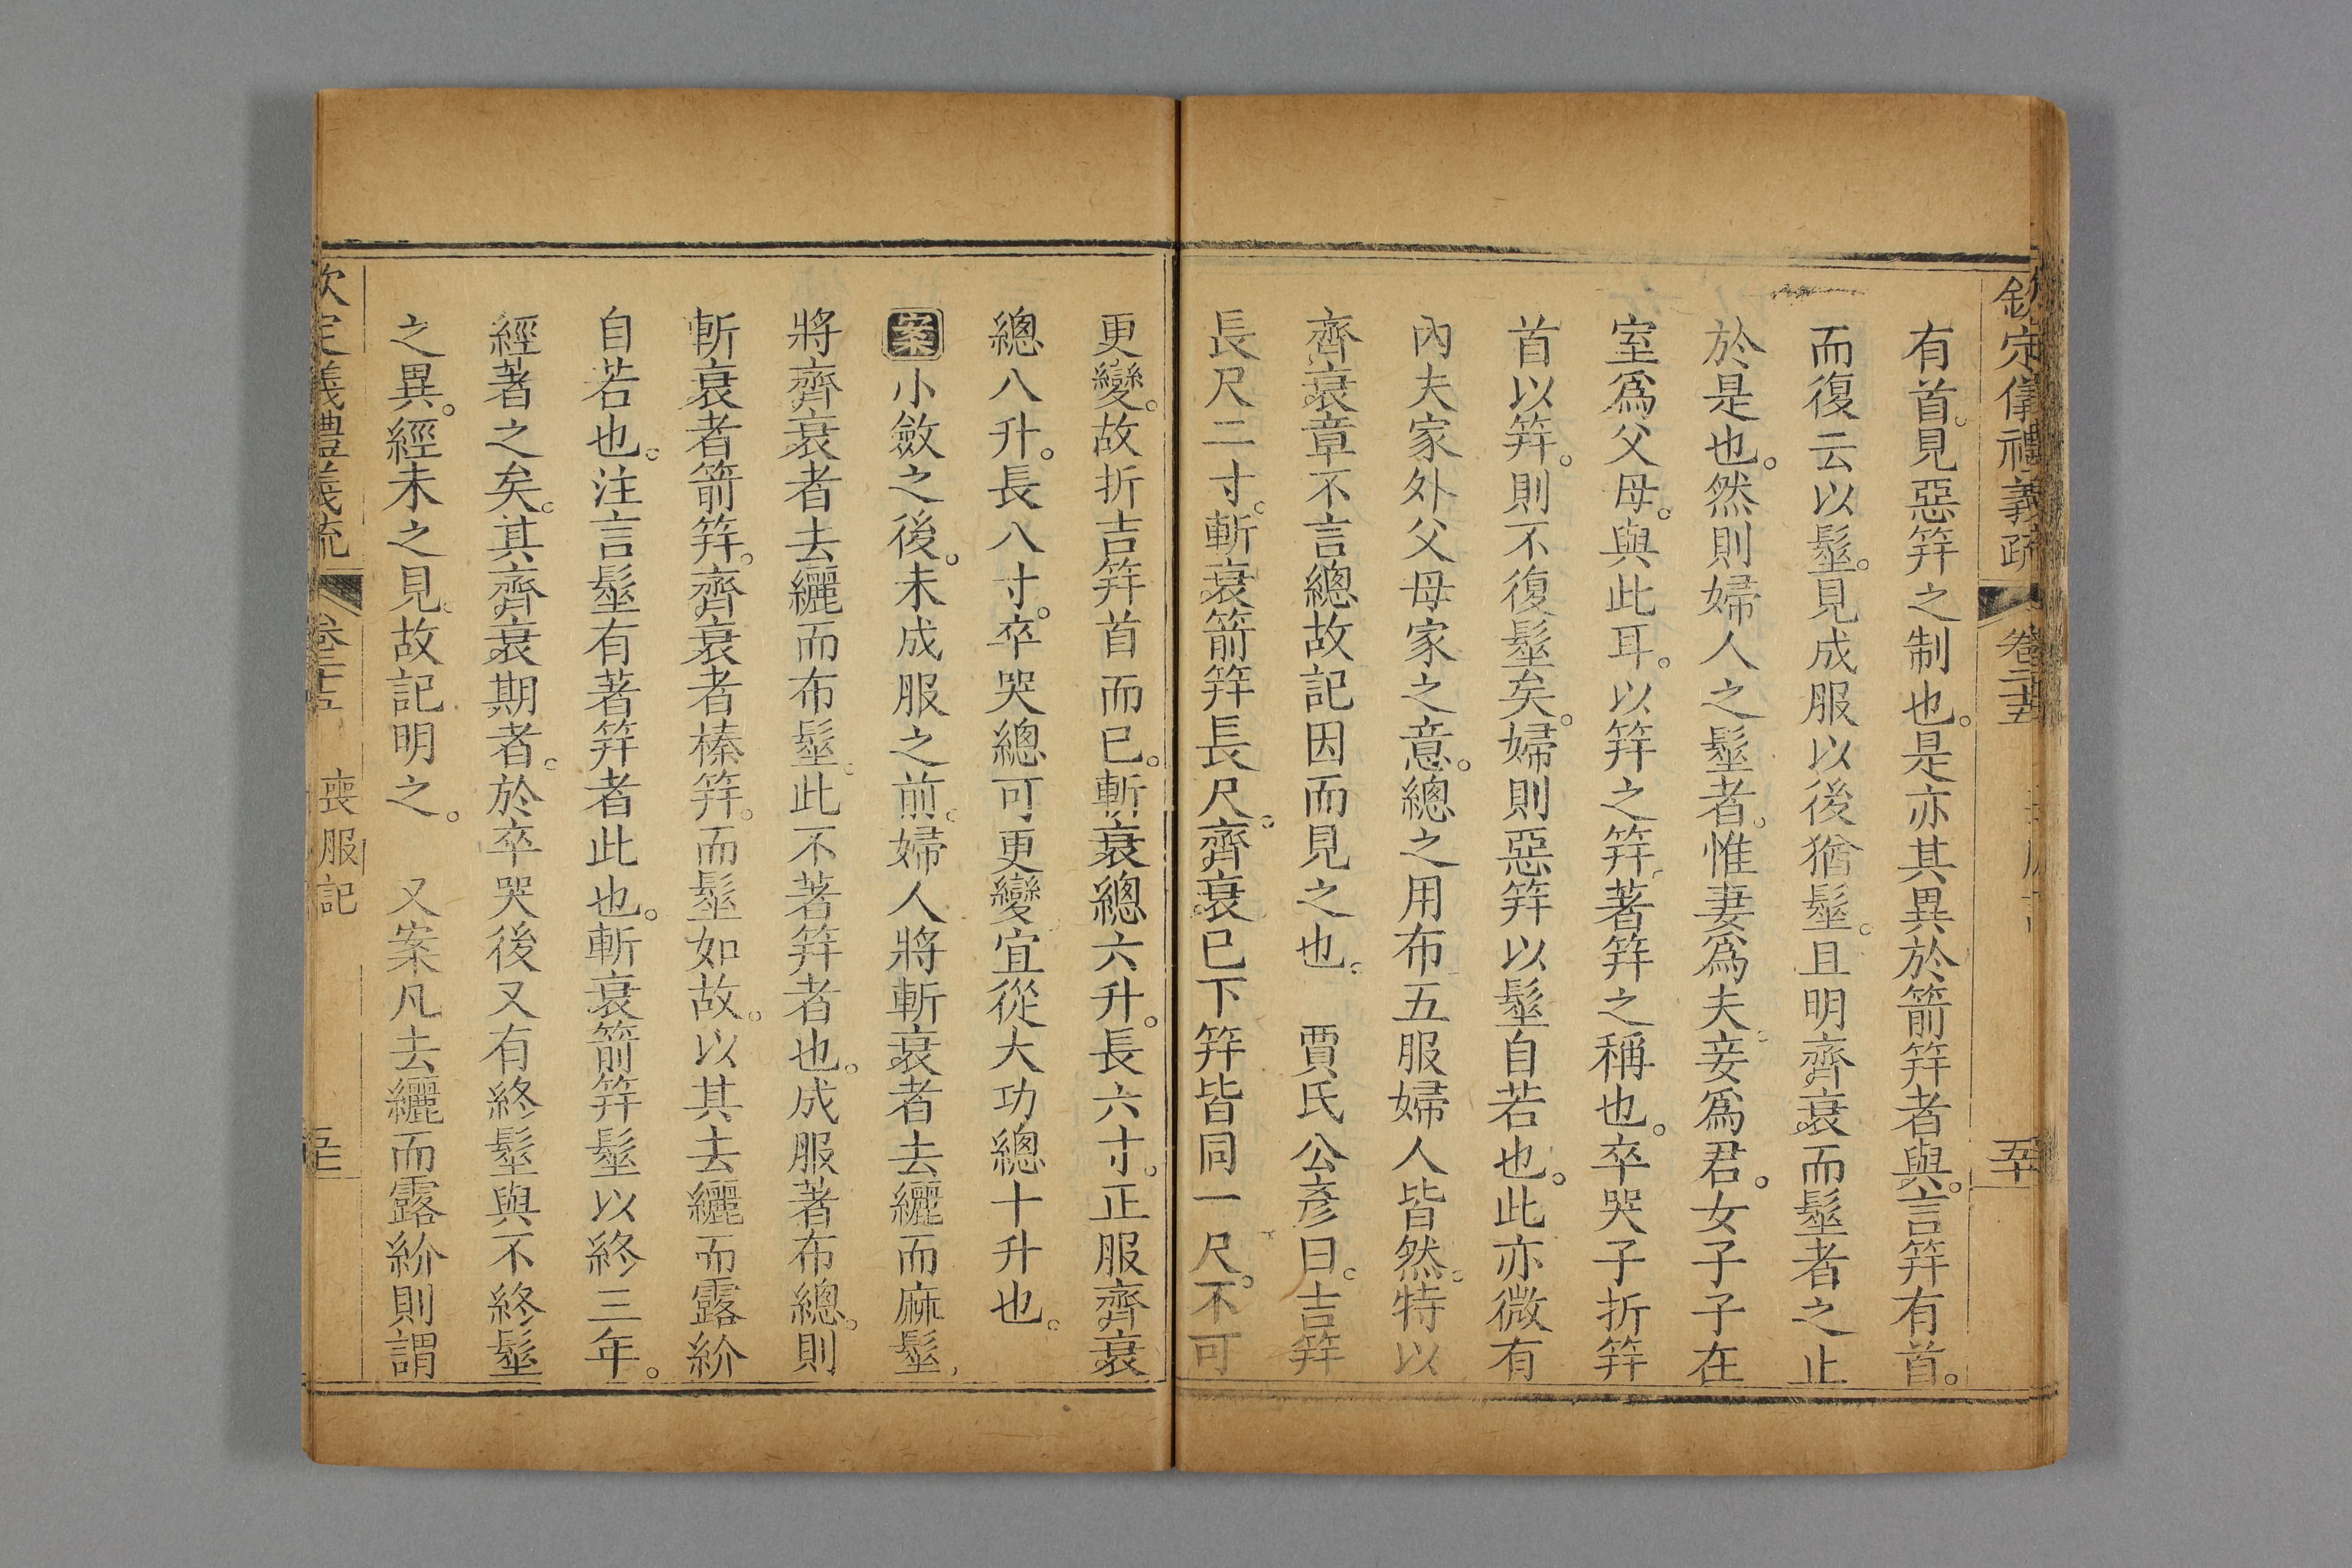 欽定儀禮義疏 卷二十五 五十
有首。見惡笄之制也。是亦其異於箭笄者與。言笄有首。
而復云以髽。見成服以後猶髽。且明齊衰而髽者之止
於是也。然則婦人之髽者。惟妻爲夫。妾爲君。女子子在
室爲父母。與此耳。以笄之笄。著笄之稱也。卒哭子折笄
首以笄。則不復髽矣。婦則惡笄以髽自若也。此亦微有
內夫家外父母家之意。總之用布五服婦人皆然。特以
齊衰章不言總故記因而見之也。 賈氏公彥曰。吉笄
長尺二寸。斬衰箭笄長尺。齊衰已下笄皆同一尺。不可
更變。故折吉笄首而已。斬衰總六升。長六寸。正服齊衰
總八升。長八寸。卒哭總可更變宜從大功總十升也。
案小斂之後。未成服之前。婦人將斬衰者去纚而麻髽。
將齊衰者去纚而布髽。此不著笄者也。成服著布總。則
斬衰者箭笄。齊衰者榛笄。而髽如故。以其去纚而露紒
自若也。注言髽有著笄者此也。斬衰箭笄髽以終三年。
經著之矣。其齊衰期者。於卒哭後又有終髽與不終髽
之異。經未之見。故記明之。 又案凡去纚而露紒則謂
欽定儀禮義疏 卷二十五 喪服記